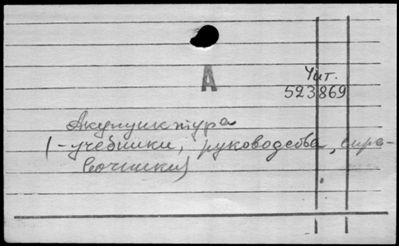 А
Чит.
523869
Акупунктура
(-учебники, руководства, спра-
вочники)